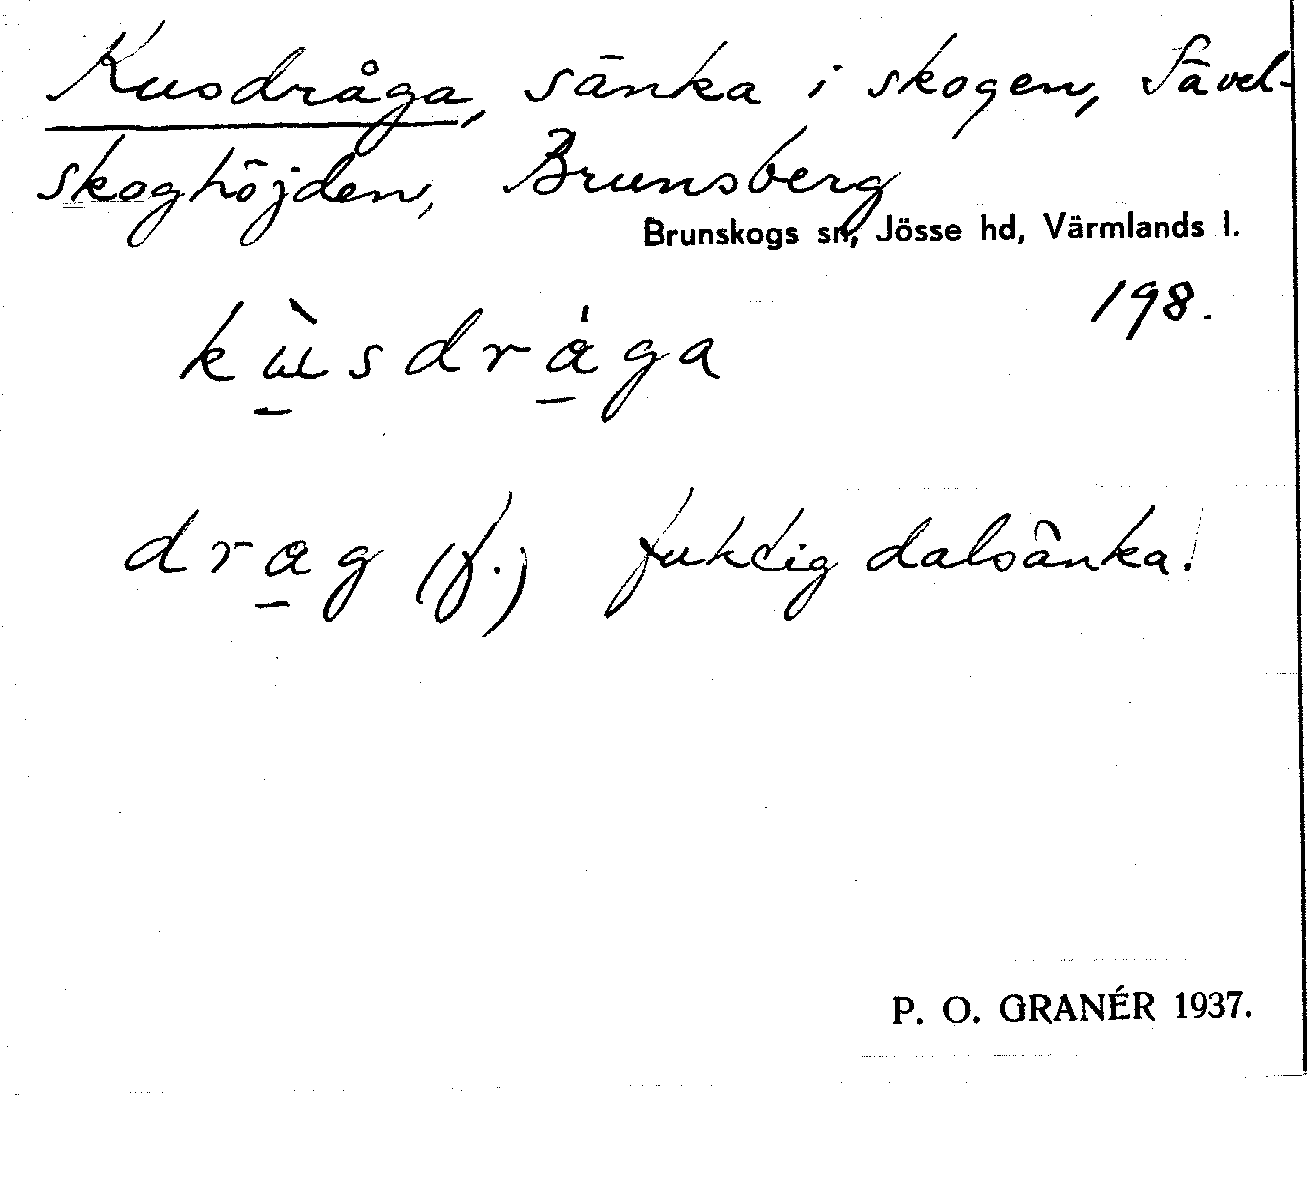 Kusdråga, sänka i skogen, Sävel-
skoghöjden, Brunsberg
Brunskogs sn, Jösse hd, Värmlands l.
198.
kùsdrága
drag (f.) fuktig dalsänka!
P. O. GRANÉR 1937.